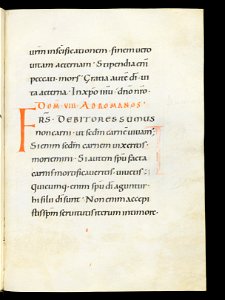 urm inscificationem. finem uero
uitam aeternam. Stipendia enĩ
peccati mors. Gratia autẽ dĩ. ui
ta aeterna. In xpo ihu. dño nro.
DOM. VIII. AD ROMANOS.
FRS. DEBITORES SUMUS
non carni. ut sedm carnẽ uiuam;
Si enim sedm carnem uixeritis.
moriemini. Si autem spu facta
carnis mortificaueritis. uiuetis;
Quicumq; enim spu dĩ aguntur
hi filii dĩ sunt. Non enim accepi
stis spm seruitutis iterum in timore.